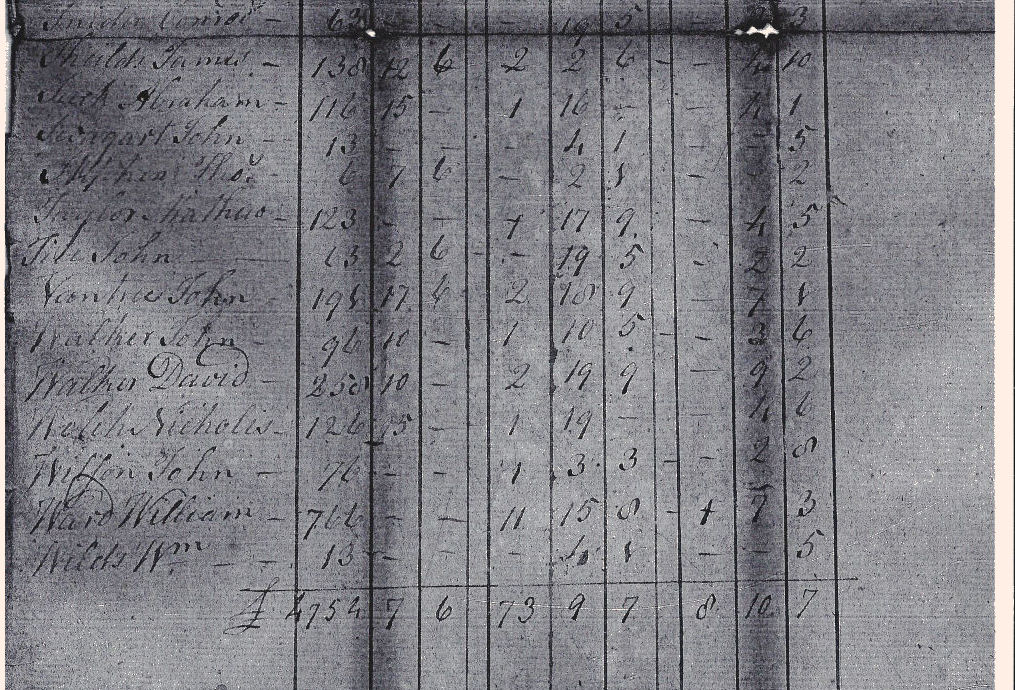 Snider Conrod - 63 19 5 3
Shields James - 138 12 6 - 2 2 6 - - 4 10
Tuck Abraham - 116 15 - 1 16 - - 4 1
John - 13 - - - 4 1 - - 5
Stephen Tho.s 6 7 6 - 2 1 - - 2
Taylor Mathew - 123 - - 1 17 9 - 4 5
John 63 2 6 - - 19 5 - 2 2
Vantree John 191 17 6 2 18 9 - 7 1
Walker John - 96 10 - 1 10 5 - - 3 6
Walker David - 258 10 - 2 19 9 - 9 2
Welch Nicholis - 126 15 - 1 19 - - 4 6
Wilson John - 76 - - 1 3 3 - - 2 8
Ward William - 766 - - 11 15 8 - 1 7 3
Wilds Wm - - 13 - - - 4 1 - - 5
£ 4754 7 6 73 9 7 8 10 7